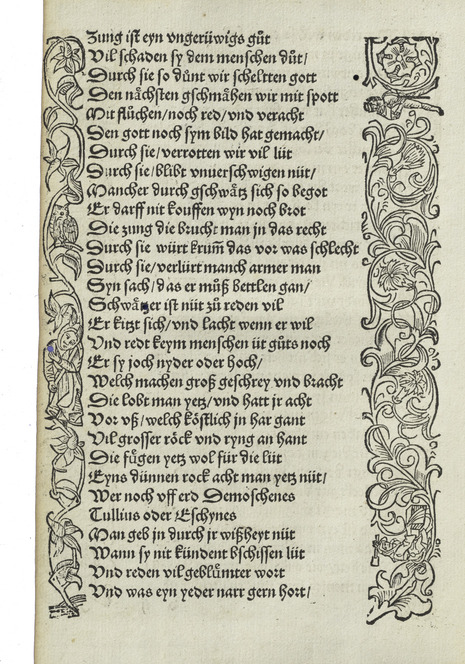 Zung ist eyn vngerüwigs gůt
Vil schaden sy dem menschen důt/
Durch sie so důnt wir scheltten gott
Den nächsten gschmähen wir mit spott
Mit flůchen/noch red/vnd veracht
Den gott noch sym bild hat gemacht/
Durch sie/verrotten wir vil lüt
Durch sie/blibt vnuerschwigen nüt/
Mancher durch gschwätz sich so begot
Er darff nit kouffen wyn noch brot
Die zung die brucht man jn das recht
Durch sie würt krum̄ das vor was schlecht
Durch sie/verlürt manch armer man
Syn sach/das er můß bettlen gan/
Schwätzer ist nüt zů reden vil
Er kitzt sich/vnd lacht wenn er wil
Vnd redt keym menschen üt gůts noch
Er sy joch nyder oder hoch/
Welch machen groß geschrey vnd bracht
Die lobt man yetz/vnd hatt jr acht
Vor vß/welch köstlich jn har gant
Vil grosser röck vnd ryng an hant
Die fůgen yetz wol für die lüt
Eyns dünnen rock acht man yetz nüt/
Wer noch vff erd Demoschenes
Tullius oder Eschynes
Man geb jn durch jr wißheyt nüt
Wann sy nit kündent bschissen lüt
Vnd reden vil geblůmter wort
Vnd was eyn yeder narr gern hort/